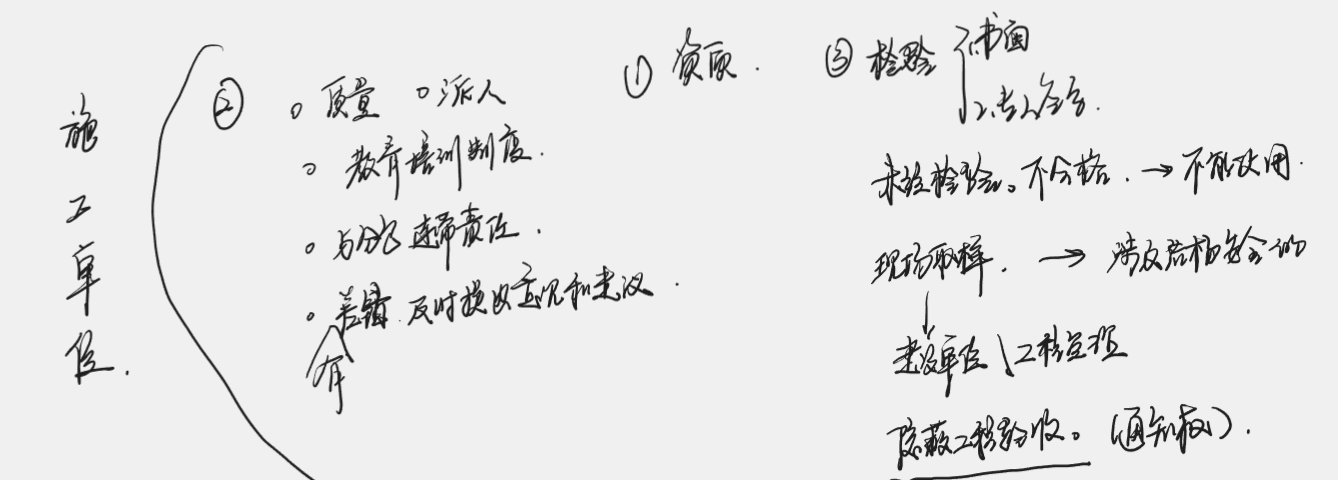 施工单位.
① 资质.
② ○ 质量 ○ 派人
○ 教育培训制度.
○ 与分包 连带责任.
○ 有差错 及时提出意见和建议.
③ 检验 1.书面
2.专人签字.
未经检验。不合格. → 不能使用.
现场取样. → 涉及结构安全的
↓
建设单位 \ 工程监理
隐蔽工程验收。(通知权).